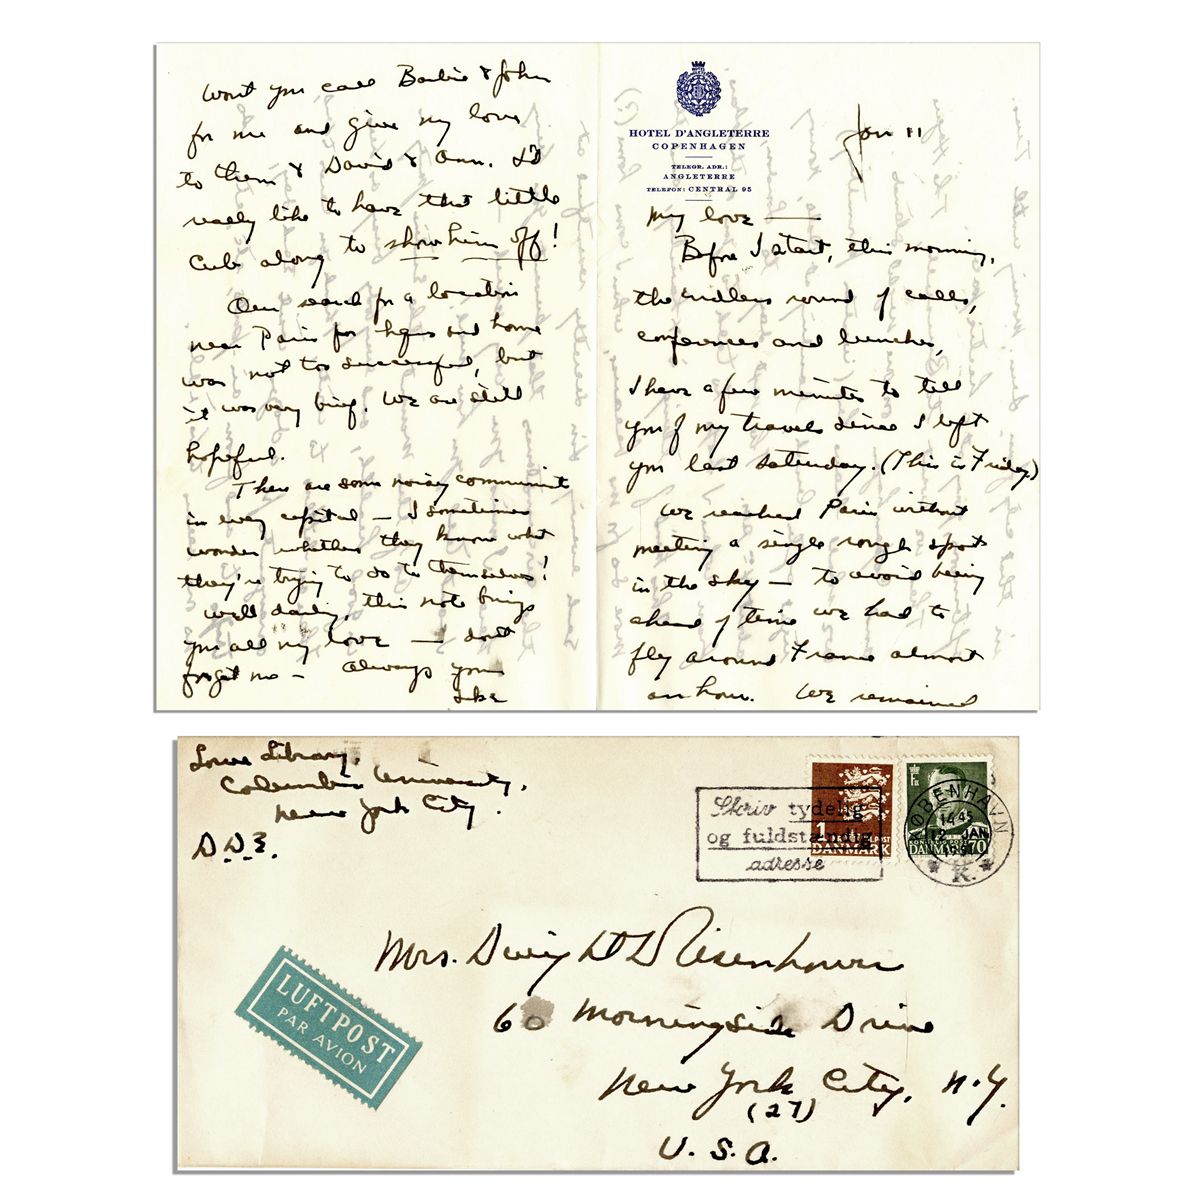 HOTEL D'ANGLETERRE
COPENHAGEN
TELEGR. ADR.:
ANGLETERRE
TELEFON: CENTRAL 95
Jan 11
My love —
Before I start, this morning,
the endless round of calls,
conferences and lunches,
I have a few minutes to tell
you of my travels since I left
you last Saturday. (This is Friday)
We reached Paris without
meeting a single rough spot
in the sky — to avoid being
ahead of time we had to
fly around France almost
an hour. We remained
Won't you call Barbie & John
for me and give my love
to them & David & Ann. I'd
really like to have that little
cub along to show him off!
Our search for a location
near Paris for hqrs and home
was not too successful, but
it was very brief. We are still
hopeful.
There are some noisy communists
in every capital — I sometimes
wonder whether they know what
they're trying to do to themselves!
Well darling, this note brings
you all my love — don't
forget me — Always your
Ike
Lowe Library,
Columbia University,
New York City.
D.D.E.
Skriv tydelig
og fuldstændig
adresse
1
DANMARK
DANMARK 70
KØBENHAVN
14 45
12 JAN
K.
LUFTPOST
PAR AVION
Mrs. Dwight D Eisenhower
60 Morningside Drive
New York City, N.Y.
(27)
U.S.A.